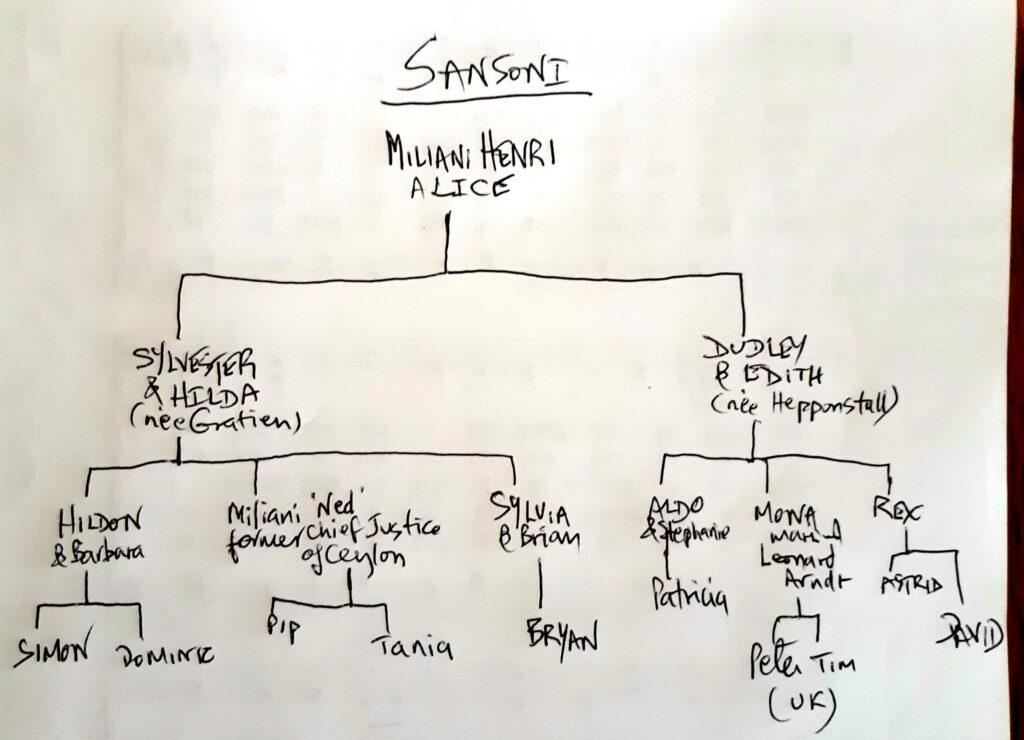 SANSONI
MILIANI HENRI
ALICE
SYLVESTER
& HILDA
(née Gratien)
DUDLEY
& EDITH
(née Hepponstall)
HILDON
& Barbara
Miliani 'Ned'
former Chief Justice
of Ceylon
SYLVIA
& Brian
ALDO
& Stephanie
MONA
Leonard
Arndt
REX
SIMON
DOMINIC
PIP
Tania
BRYAN
Patricia
Peter Tim
(UK)
ASTRID
DAVID